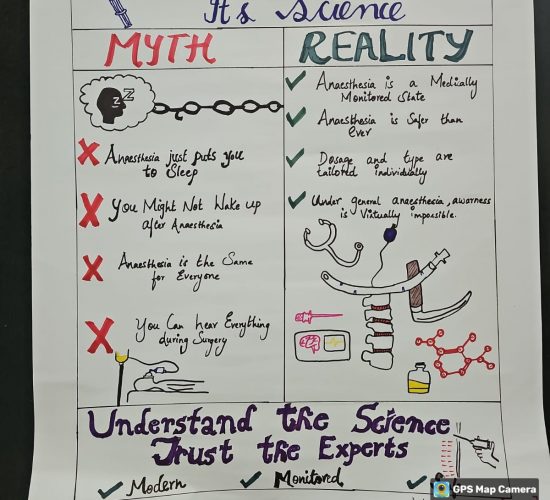 It's Science
MYTH
REALITY
z z z
Anaesthesia just puts you
to Sleep
You Might Not Wake up
after Anaesthesia
Anaesthesia is the Same
for Everyone
You Can hear Everything
during Surgery
Anaesthesia is a Medically
Monitored State
Anaesthesia is Safer than
Ever
Dosage and type are
tailored individually
Under general anaesthesia, awarness
is Virtually impossible.
Understand the Science
Trust the Experts
Modern
Monitored
GPS Map Camera